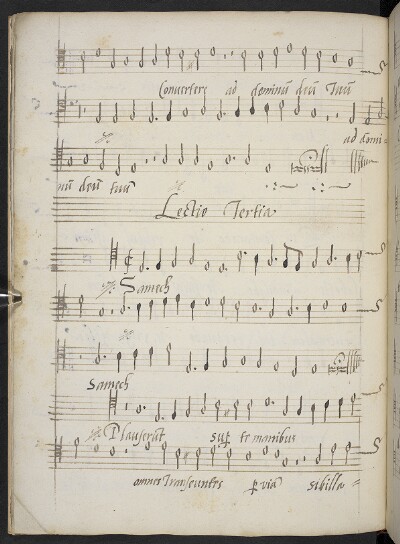 Convertere ad dominū deū tuū
ad domi-
nū deū tuū
Lectio Tertia
Samech
Samech
Plauserūt sup̱ te manibus
omnes transeuntes p̱ viā sibilla=